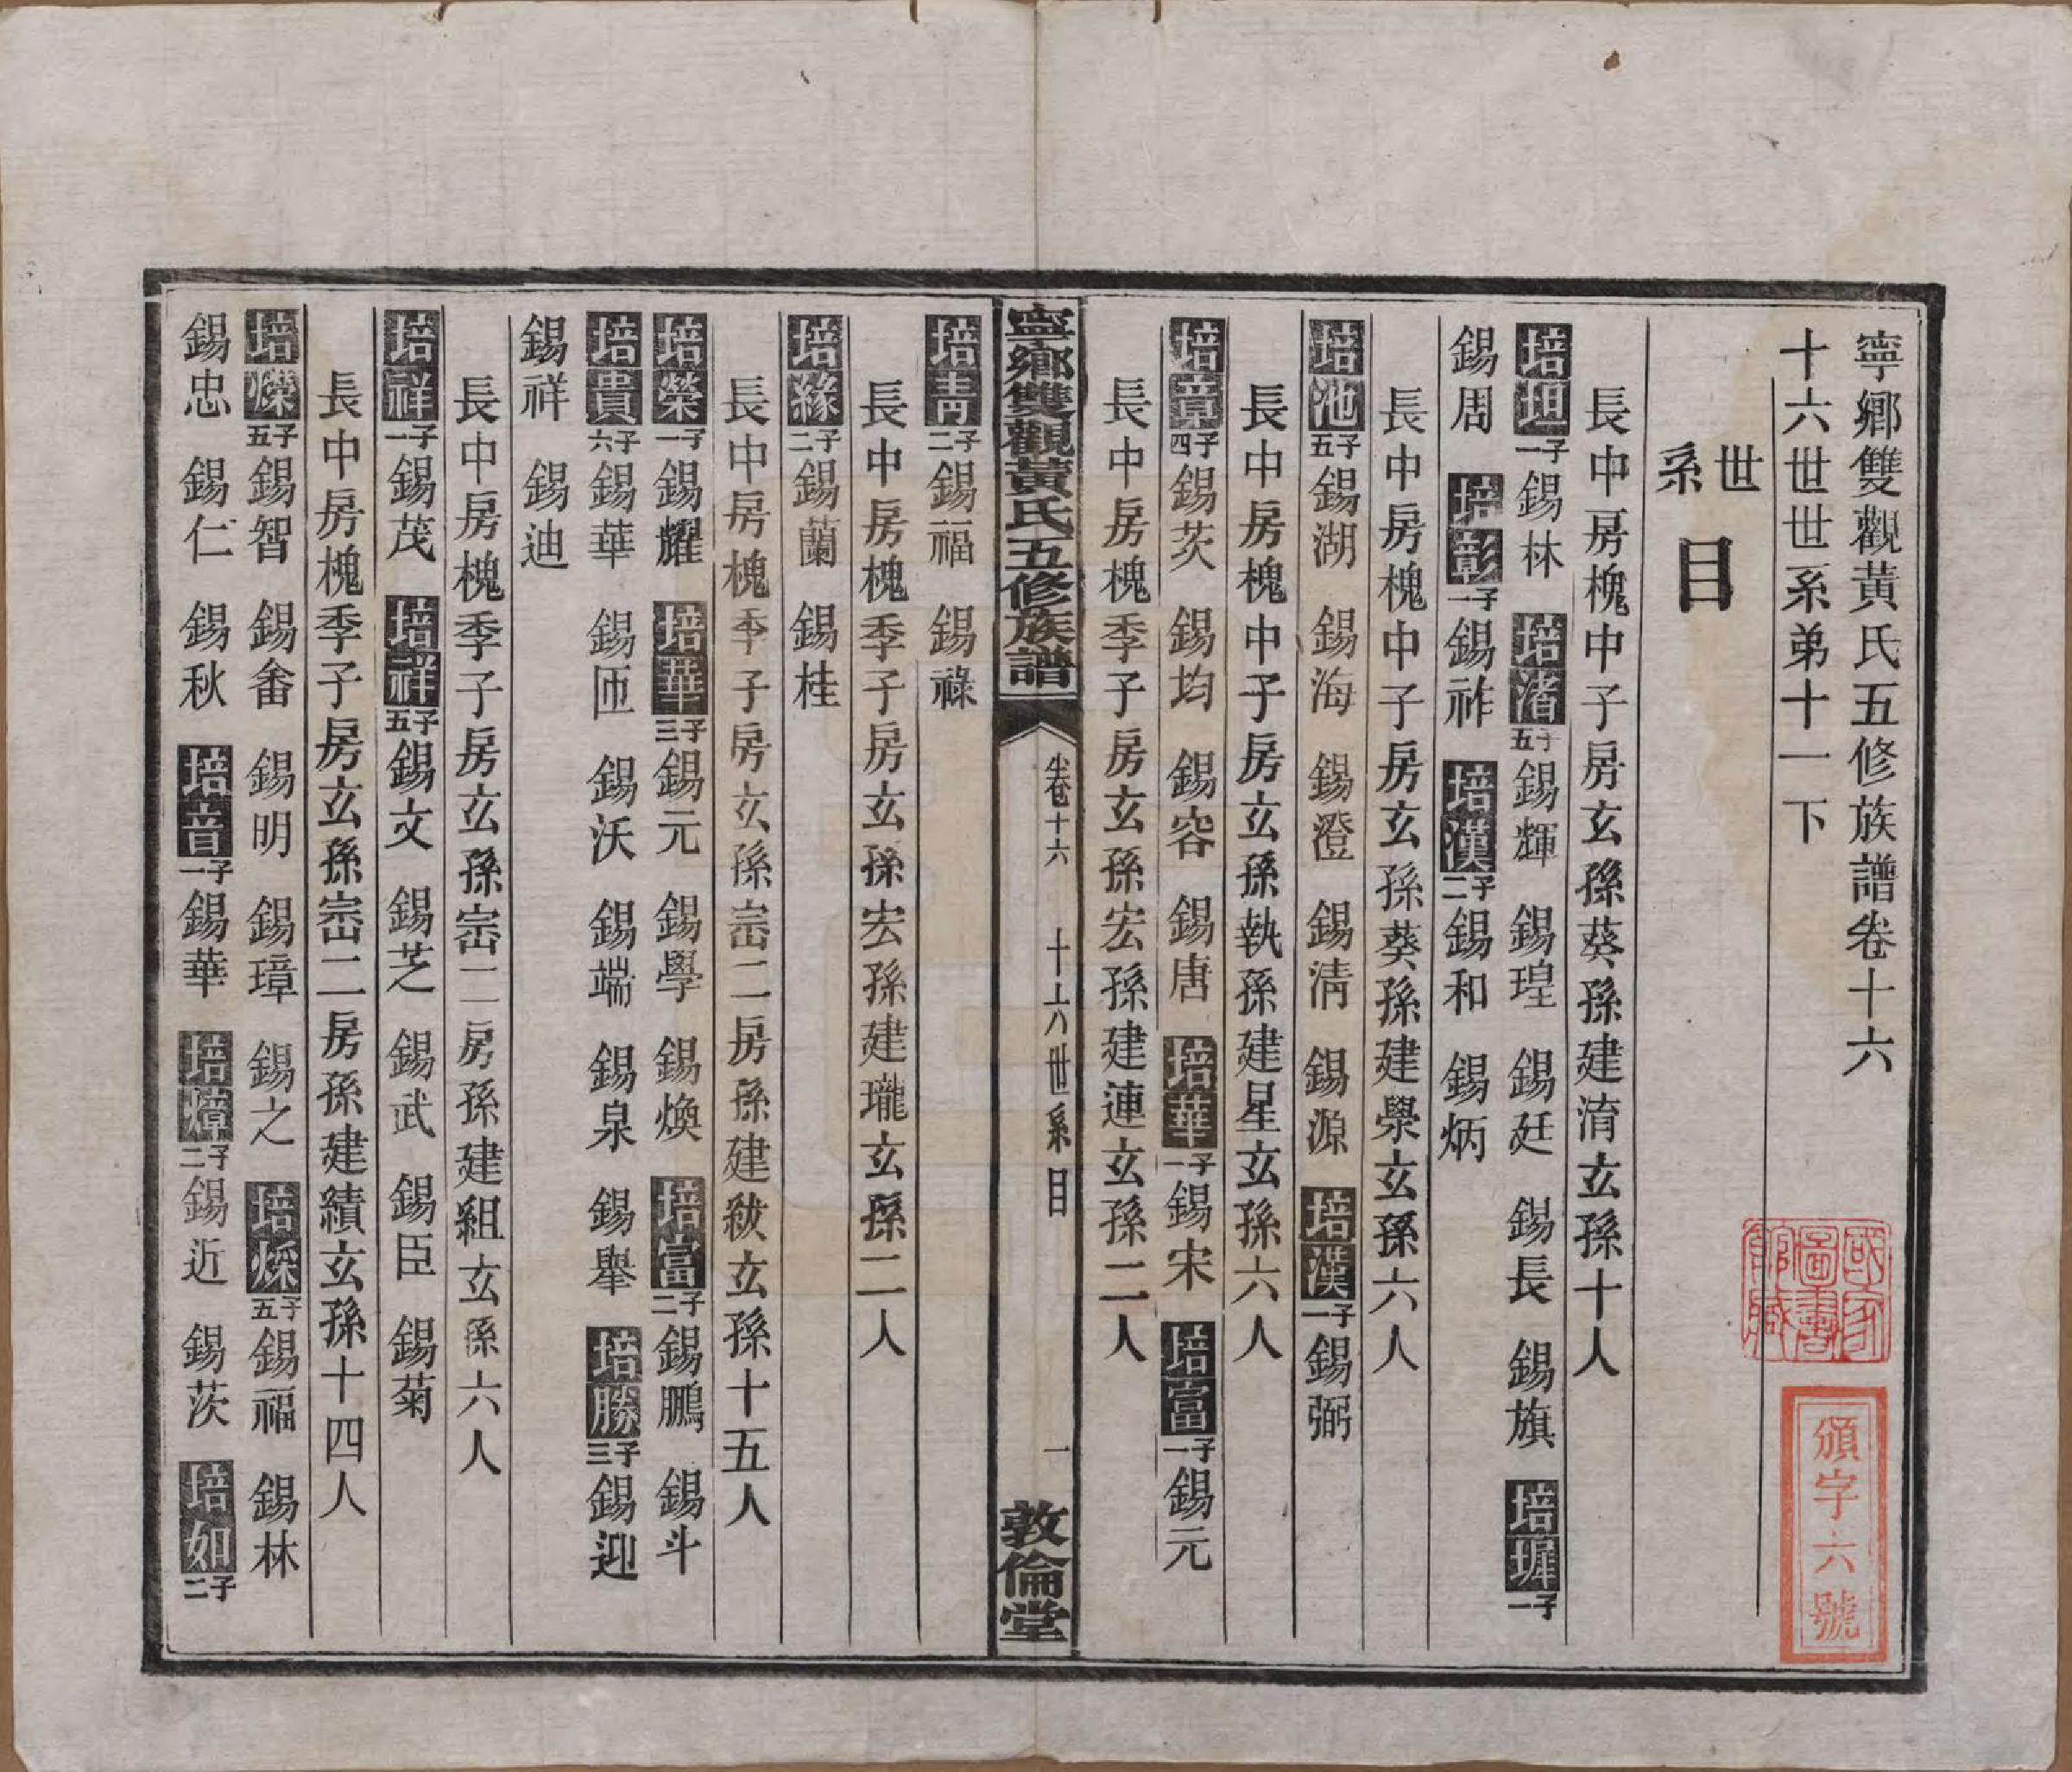 寧鄉雙觀黃氏五修族譜卷十六
十六世世系弟十一下
世系目
長中房槐中子房玄孫葵孫建淯玄孫十人
培坦子一錫林 培渚子五錫輝 錫瑝 錫廷 錫長 錫旗 培墀子一
錫周 培彰子一錫祚 培漢子二錫和 錫炳
長中房槐中子房玄孫葵孫建學玄孫六人
培池子五錫湖 錫海 錫澄 錫清 錫源 培漢子一錫弼
長中房槐中子房玄孫執孫建星玄孫六人
培章子四錫茨 錫均 錫容 錫唐 培華子一錫宋 培富子一錫元
長中房槐季子房玄孫宏孫建連玄孫二人
寧鄉雙觀黃氏五修族譜 卷十六 十六世系目 一 敦倫堂
培青子二錫福 錫祿
長中房槐季子房玄孫宏孫建瓏玄孫二人
培緣子二錫蘭 錫桂
長中房槐季子房玄孫崈二房孫建紱玄孫十五人
培榮子一錫耀 培華子三錫元 錫學 錫煥 培富子二錫鵬 錫斗
培貴子六錫華 錫匝 錫沃 錫端 錫泉 錫舉 培勝子三錫迎
錫祥 錫迪
長中房槐季子房玄孫崈二房孫建組玄孫六人
培祥子一錫茂 培祥子五錫文 錫芝 錫武 錫臣 錫菊
長中房槐季子房玄孫崈二房孫建績玄孫十四人
培爍子五錫智 錫畬 錫明 錫璋 錫之 培㷂子五錫福 錫林
錫忠 錫仁 錫秋 培音子一錫華 培熿子二錫近 錫茨 培如子二
國家圖書館藏
頒字六號